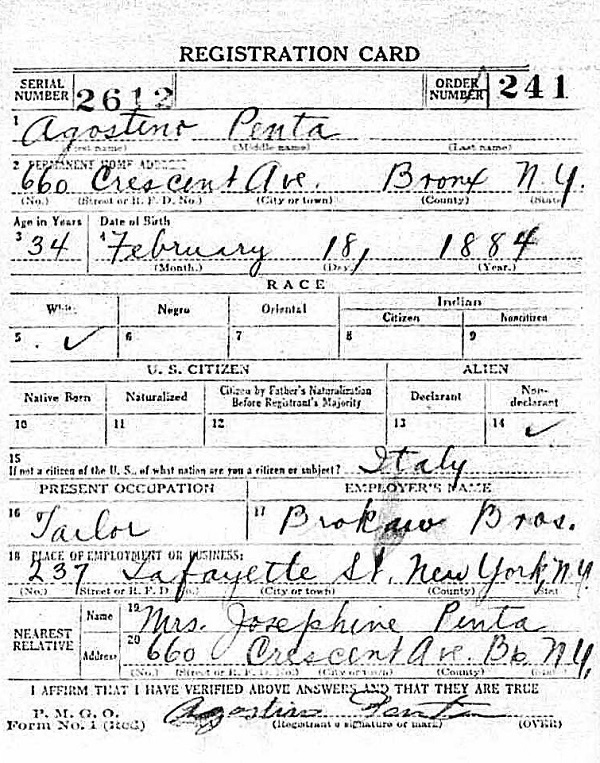 REGISTRATION CARD
SERIAL NUMBER 2612 ORDER NUMBER 241
1 Agostino Penta
(First name) (Middle name) (Last name)
2 PERMANENT HOME ADDRESS
660 Crescent Ave. Bronx N.Y.
(No.) (Street or R. F. D. No.) (City or town) (County) (State)
Age in Years Date of Birth
3 34 4 February 18, 1884
(Month.) (Day.) (Year.)
RACE
White Negro Oriental Indian
Citizen Noncitizen
5 ✓ 6 7 8 9
U. S. CITIZEN ALIEN
Native Born Naturalized Citizen by Father's Naturalization Before Registrant's Majority Declarant Non-declarant
10 11 12 13 14 ✓
15
If not a citizen of the U. S., of what nation are you a citizen or subject? Italy
PRESENT OCCUPATION EMPLOYER'S NAME
16 Tailor 17 Brokaw Bros.
18 PLACE OF EMPLOYMENT OR BUSINESS:
237 Lafayette St. New York, N.Y.
(No.) (Street or R. F. D. No.) (City or town) (County) (State)
NEAREST RELATIVE Name 19 Mrs. Josephine Penta
Address 20 660 Crescent Ave. Bx N.Y.
(No.) (Street or R. F. D. No.) (City or town) (County) (State)
I AFFIRM THAT I HAVE VERIFIED ABOVE ANSWERS AND THAT THEY ARE TRUE
P. M. G. O.
Form No. 1 (Red) Agostino Penta
(Registrant's signature or mark) (OVER)